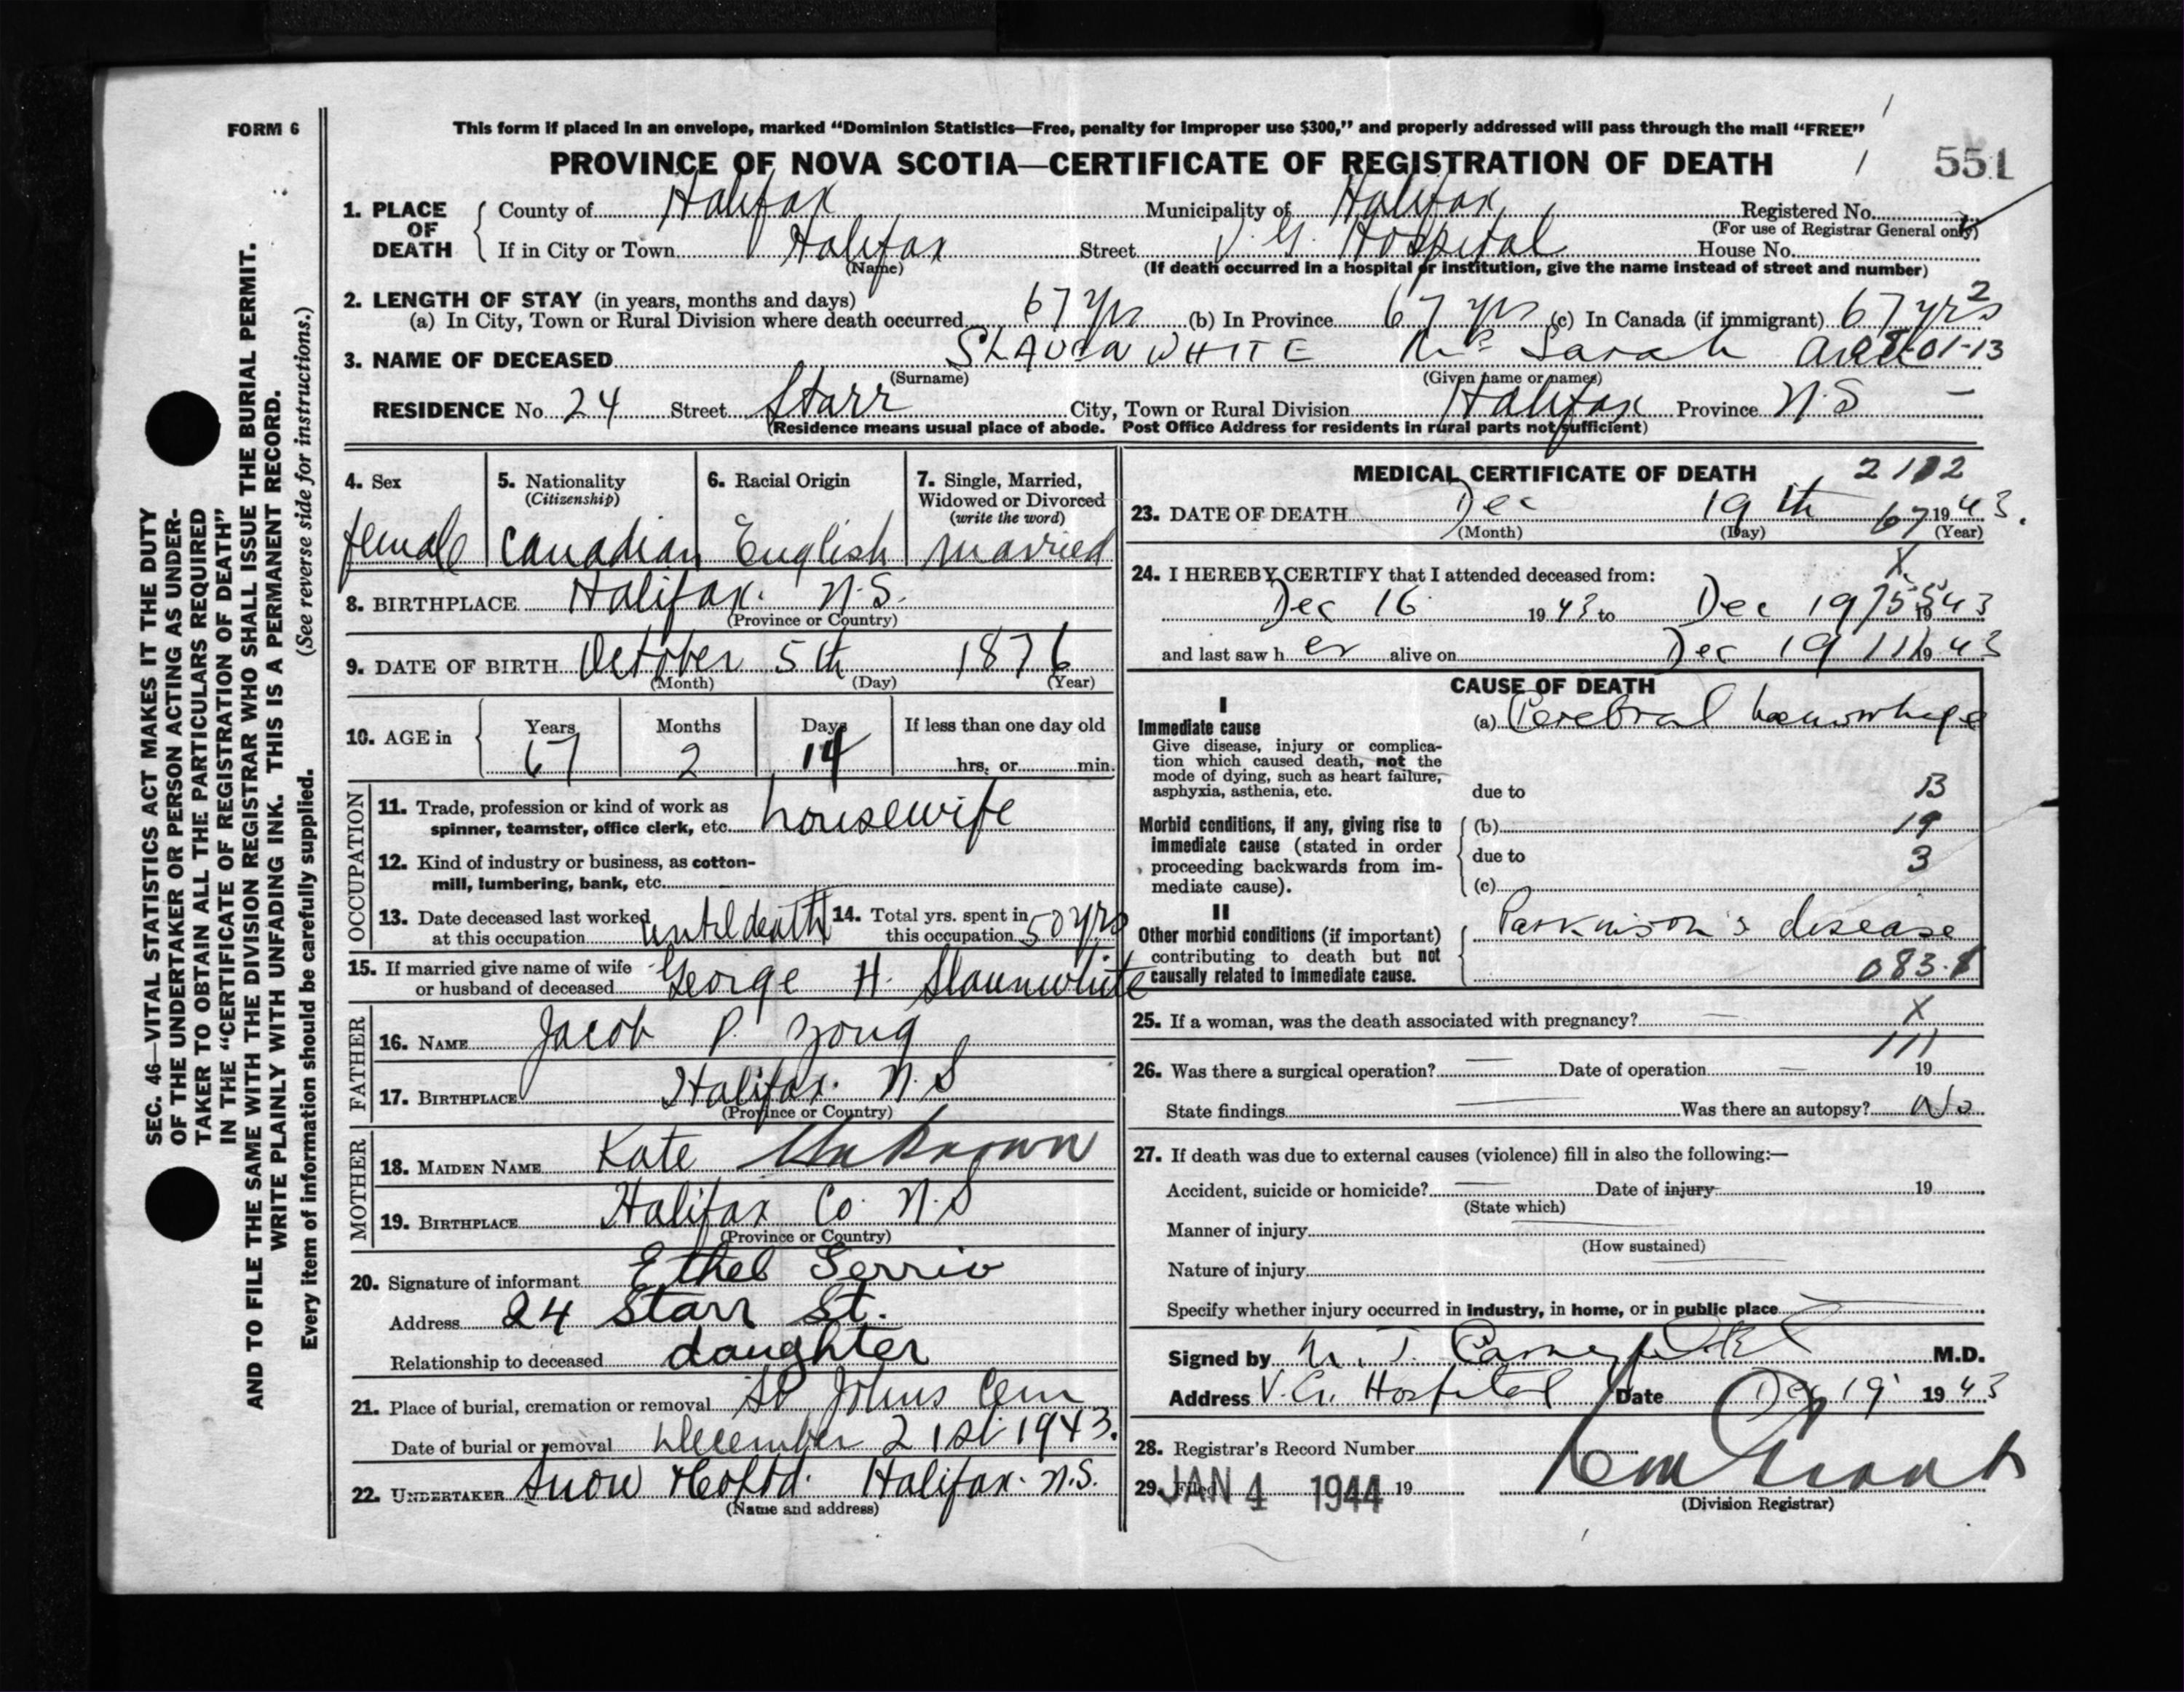 FORM 6
This form if placed in an envelope, marked “Dominion Statistics—Free, penalty for improper use $300,” and properly addressed will pass through the mail “FREE”
PROVINCE OF NOVA SCOTIA—CERTIFICATE OF REGISTRATION OF DEATH
551
1. PLACE OF DEATH
County of Halifax Municipality of Halifax Registered No.
(For use of Registrar General only)
If in City or Town Halifax Street V. G. Hospital House No.
(Name) (If death occurred in a hospital or institution, give the name instead of street and number)
2. LENGTH OF STAY (in years, months and days)
(a) In City, Town or Rural Division where death occurred 67 yrs (b) In Province 67 yrs (c) In Canada (if immigrant) 67 yrs 2
3. NAME OF DECEASED SLAUENWHITE Mrs Sarah 01-13
(Surname) (Given name or names)
RESIDENCE No. 24 Street Starr City, Town or Rural Division Halifax Province N.S —
(Residence means usual place of abode. Post Office Address for residents in rural parts not sufficient)
4. Sex female
5. Nationality (Citizenship) Canadian
6. Racial Origin English
7. Single, Married, Widowed or Divorced (write the word) married
8. BIRTHPLACE Halifax. N.S.
(Province or Country)
9. DATE OF BIRTH October 5th 1876
(Month) (Day) (Year)
10. AGE in Years 67 Months 2 Days 14 If less than one day old
hrs. or min.
OCCUPATION
11. Trade, profession or kind of work as
spinner, teamster, office clerk, etc. housewife
12. Kind of industry or business, as cotton-
mill, lumbering, bank, etc.
13. Date deceased last worked at this occupation until death 14. Total yrs. spent in this occupation 50 yrs
15. If married give name of wife or husband of deceased George H. Slaunwhite
FATHER
16. NAME Jacob P. Zong
17. BIRTHPLACE Halifax. N.S
(Province or Country)
MOTHER
18. MAIDEN NAME Kate Unknown
19. BIRTHPLACE Halifax Co. N.S
(Province or Country)
20. Signature of informant Ethel
Address 24 Starr St.
Relationship to deceased daughter
21. Place of burial, cremation or removal St Johns Cem
Date of burial or removal December 21st 1943.
22. UNDERTAKER Snow & Co Ltd. Halifax. N.S.
(Name and address)
MEDICAL CERTIFICATE OF DEATH 2112
23. DATE OF DEATH Dec 19th 67 1943.
(Month) (Day) (Year)
X
24. I HEREBY CERTIFY that I attended deceased from:
Dec 16 1943 to Dec 19 1943
and last saw her alive on Dec 19 1943
CAUSE OF DEATH
I
Immediate cause (a) Cerebral haemorrhage
Give disease, injury or complica-
tion which caused death, not the
mode of dying, such as heart failure,
asphyxia, asthenia, etc.
due to B
Morbid conditions, if any, giving rise to (b) 19
immediate cause (stated in order due to 3
proceeding backwards from im-
mediate cause). (c)
II
Other morbid conditions (if important) Parkinson's disease
contributing to death but not
causally related to immediate cause. 083.1
25. If a woman, was the death associated with pregnancy? — X
111
26. Was there a surgical operation? — Date of operation — 19
State findings — Was there an autopsy? No
27. If death was due to external causes (violence) fill in also the following:—
Accident, suicide or homicide? — Date of injury 19
(State which)
Manner of injury
(How sustained)
Nature of injury
Specify whether injury occurred in industry, in home, or in public place
Signed by M.D.
Address V. G. Hospital Date Dec 19 1943
28. Registrar's Record Number
29. Filed JAN 4 1944 19
(Division Registrar)
SEC. 46—VITAL STATISTICS ACT MAKES IT THE DUTY
OF THE UNDERTAKER OR PERSON ACTING AS UNDER-
TAKER TO OBTAIN ALL THE PARTICULARS REQUIRED
IN THE “CERTIFICATE OF REGISTRATION OF DEATH”
AND TO FILE THE SAME WITH THE DIVISION REGISTRAR WHO SHALL ISSUE THE BURIAL PERMIT.
WRITE PLAINLY WITH UNFADING INK. THIS IS A PERMANENT RECORD.
Every item of information should be carefully supplied. (See reverse side for instructions.)